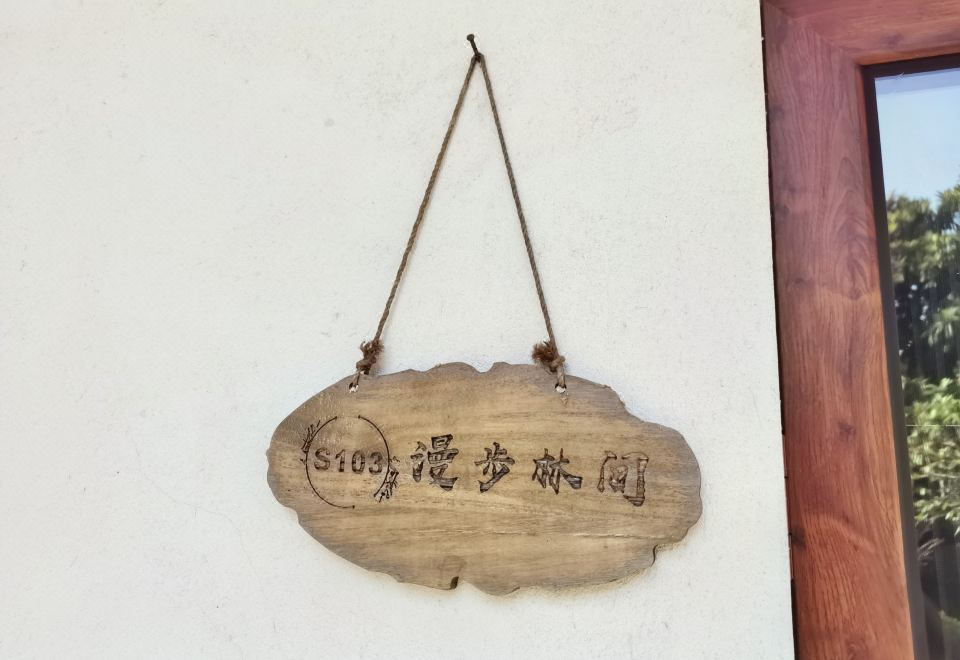 S103 漫步林间